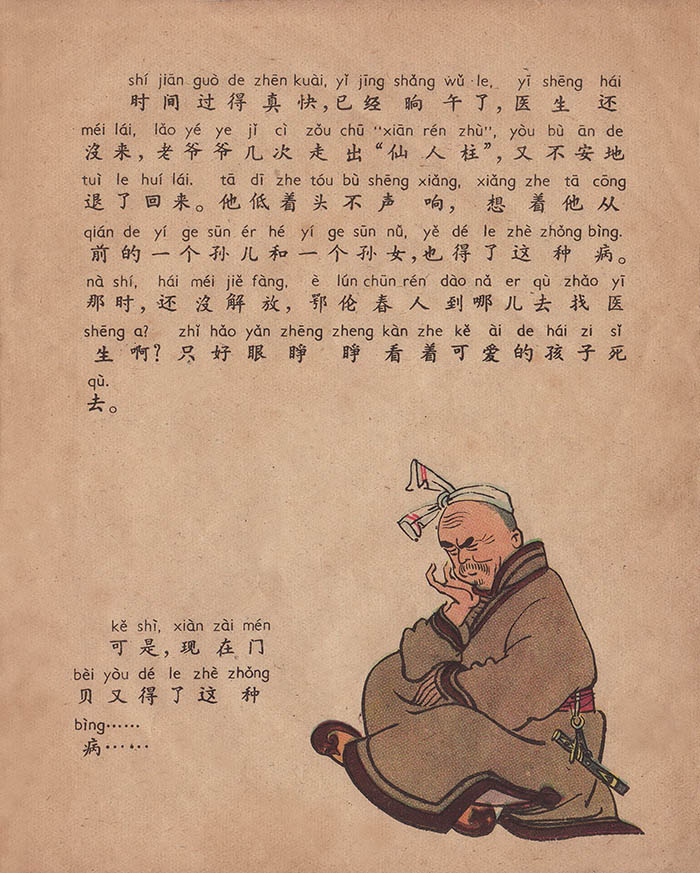 shí jiān guò de zhēn kuài, yǐ jīng shǎng wǔ le, yī shēng hái
时间过得真快,已经晌午了,医生还
méi lái, lǎo yé ye jǐ cì zǒu chū “xiān rén zhù”, yòu bù ān de
没来,老爷爷几次走出“仙人柱”,又不安地
tuì le huí lái. tā dī zhe tóu bù shēng xiǎng, xiǎng zhe tā cōng
退了回来。他低着头不声响,想着他从
qián de yí ge sūn ér hé yí ge sūn nǚ, yě dé le zhè zhǒng bìng.
前的一个孙儿和一个孙女,也得了这种病。
nà shí, hái méi jiě fàng, è lún chūn rén dào nǎ er qù zhǎo yī
那时,还没解放,鄂伦春人到哪儿去找医
shēng a? zhǐ hǎo yǎn zhēng zheng kàn zhe kě ài de hái zi sǐ
生啊?只好眼睁睁看着可爱的孩子死
qù.
去。
kě shì, xiàn zài mén
可是,现在门
bèi yòu dé le zhè zhǒng
贝又得了这种
bìng……
病……